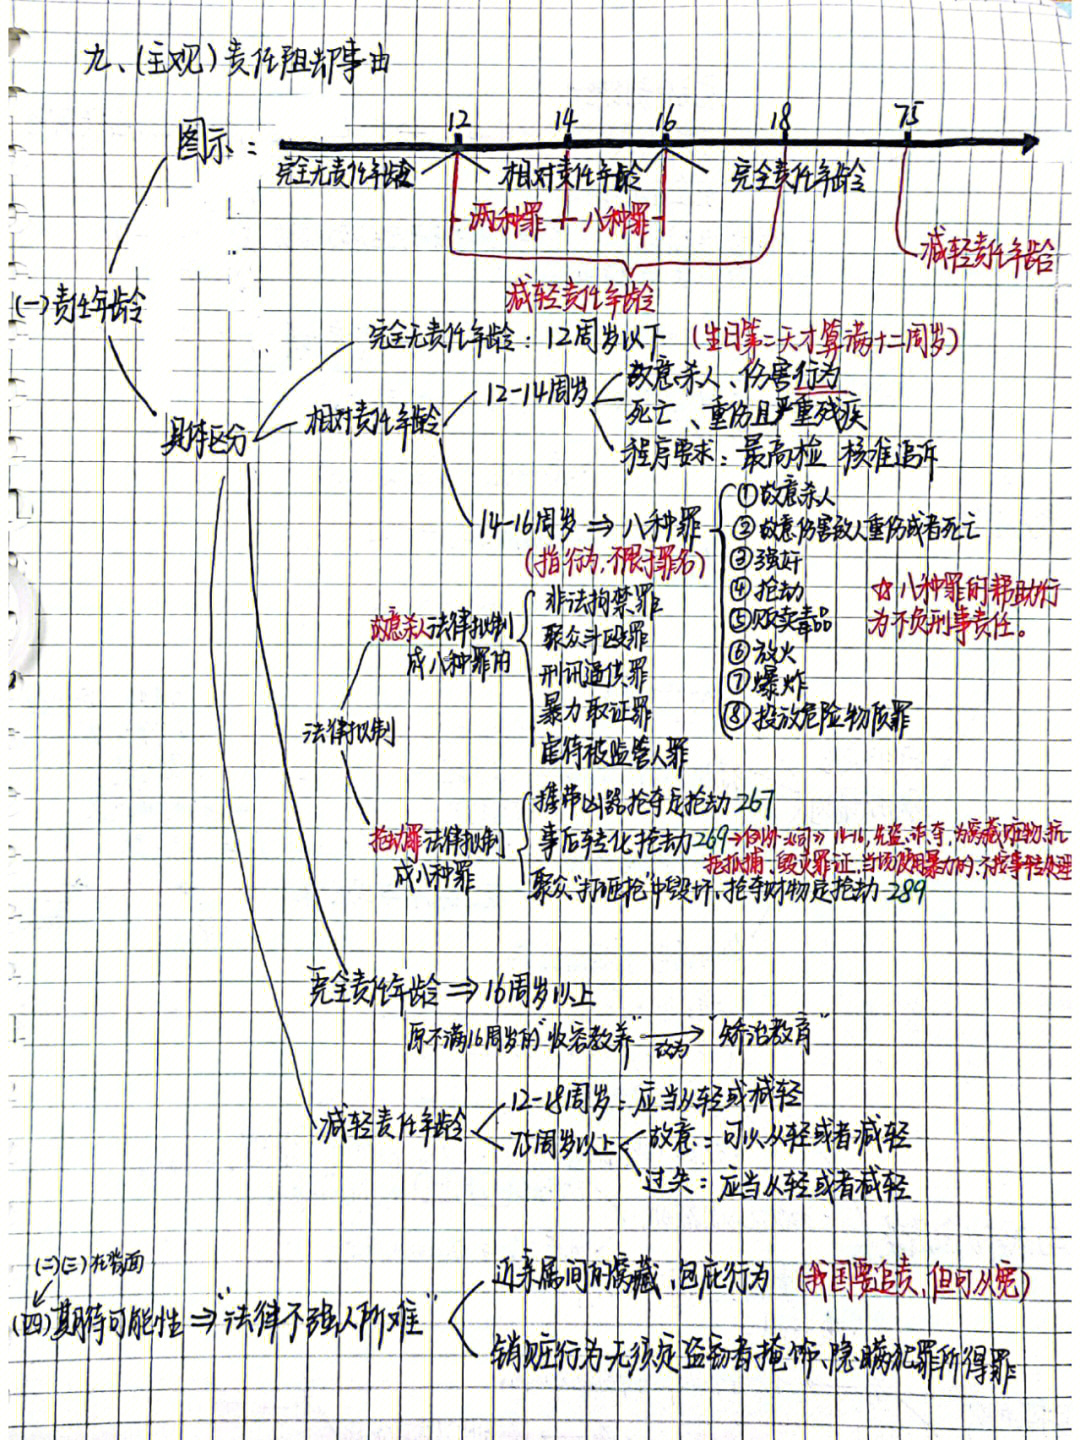 九、(主观)责任阻却事由
图示:
12 14 16 18 75
完全无责任年龄 相对责任年龄 完全责任年龄
两种罪 八种罪
减轻责任年龄
减轻责任年龄
(一)责任年龄
完全无责任年龄:12周岁以下 (生日第二天才算满十二周岁)
具体区分
相对责任年龄
12-14周岁
故意杀人、伤害行为
死亡、重伤且严重残疾
程序要求:最高检 核准追诉
14-16周岁⇒八种罪
(指行为,不限于罪名)
①故意杀人
②故意伤害致人重伤或者死亡
③强奸
④抢劫
⑤贩卖毒品
⑥放火
⑦爆炸
⑧投放危险物质罪
☆八种罪的帮助行
为不负刑事责任。
法律拟制
故意杀人法律拟制
成八种罪的
非法拘禁罪
聚众斗殴罪
刑讯逼供罪
暴力取证罪
虐待被监管人罪
抢劫罪法律拟制
成八种罪
携带凶器抢夺定抢劫267
事后转化抢劫269→ 14-16,先盗、诈、夺,为窝藏赃物、抗
拒抓捕、毁灭罪证,当场使用暴力的,不按事转处理
聚众"打砸抢"中毁坏、抢夺财物定抢劫-289
完全责任年龄⇒16周岁以上
原不满16周岁的"收容教养"改为→"矫治教育"
减轻责任年龄
12-18周岁:应当从轻或减轻
75周岁以上
故意:可以从轻或者减轻
过失:应当从轻或者减轻
(二)(三)在背面
(四)期待可能性⇒"法律不强人所难"
近亲属间的窝藏、包庇行为 (我国要追责,但可从宽)
销赃行为无须定盗窃者掩饰、隐瞒犯罪所得罪